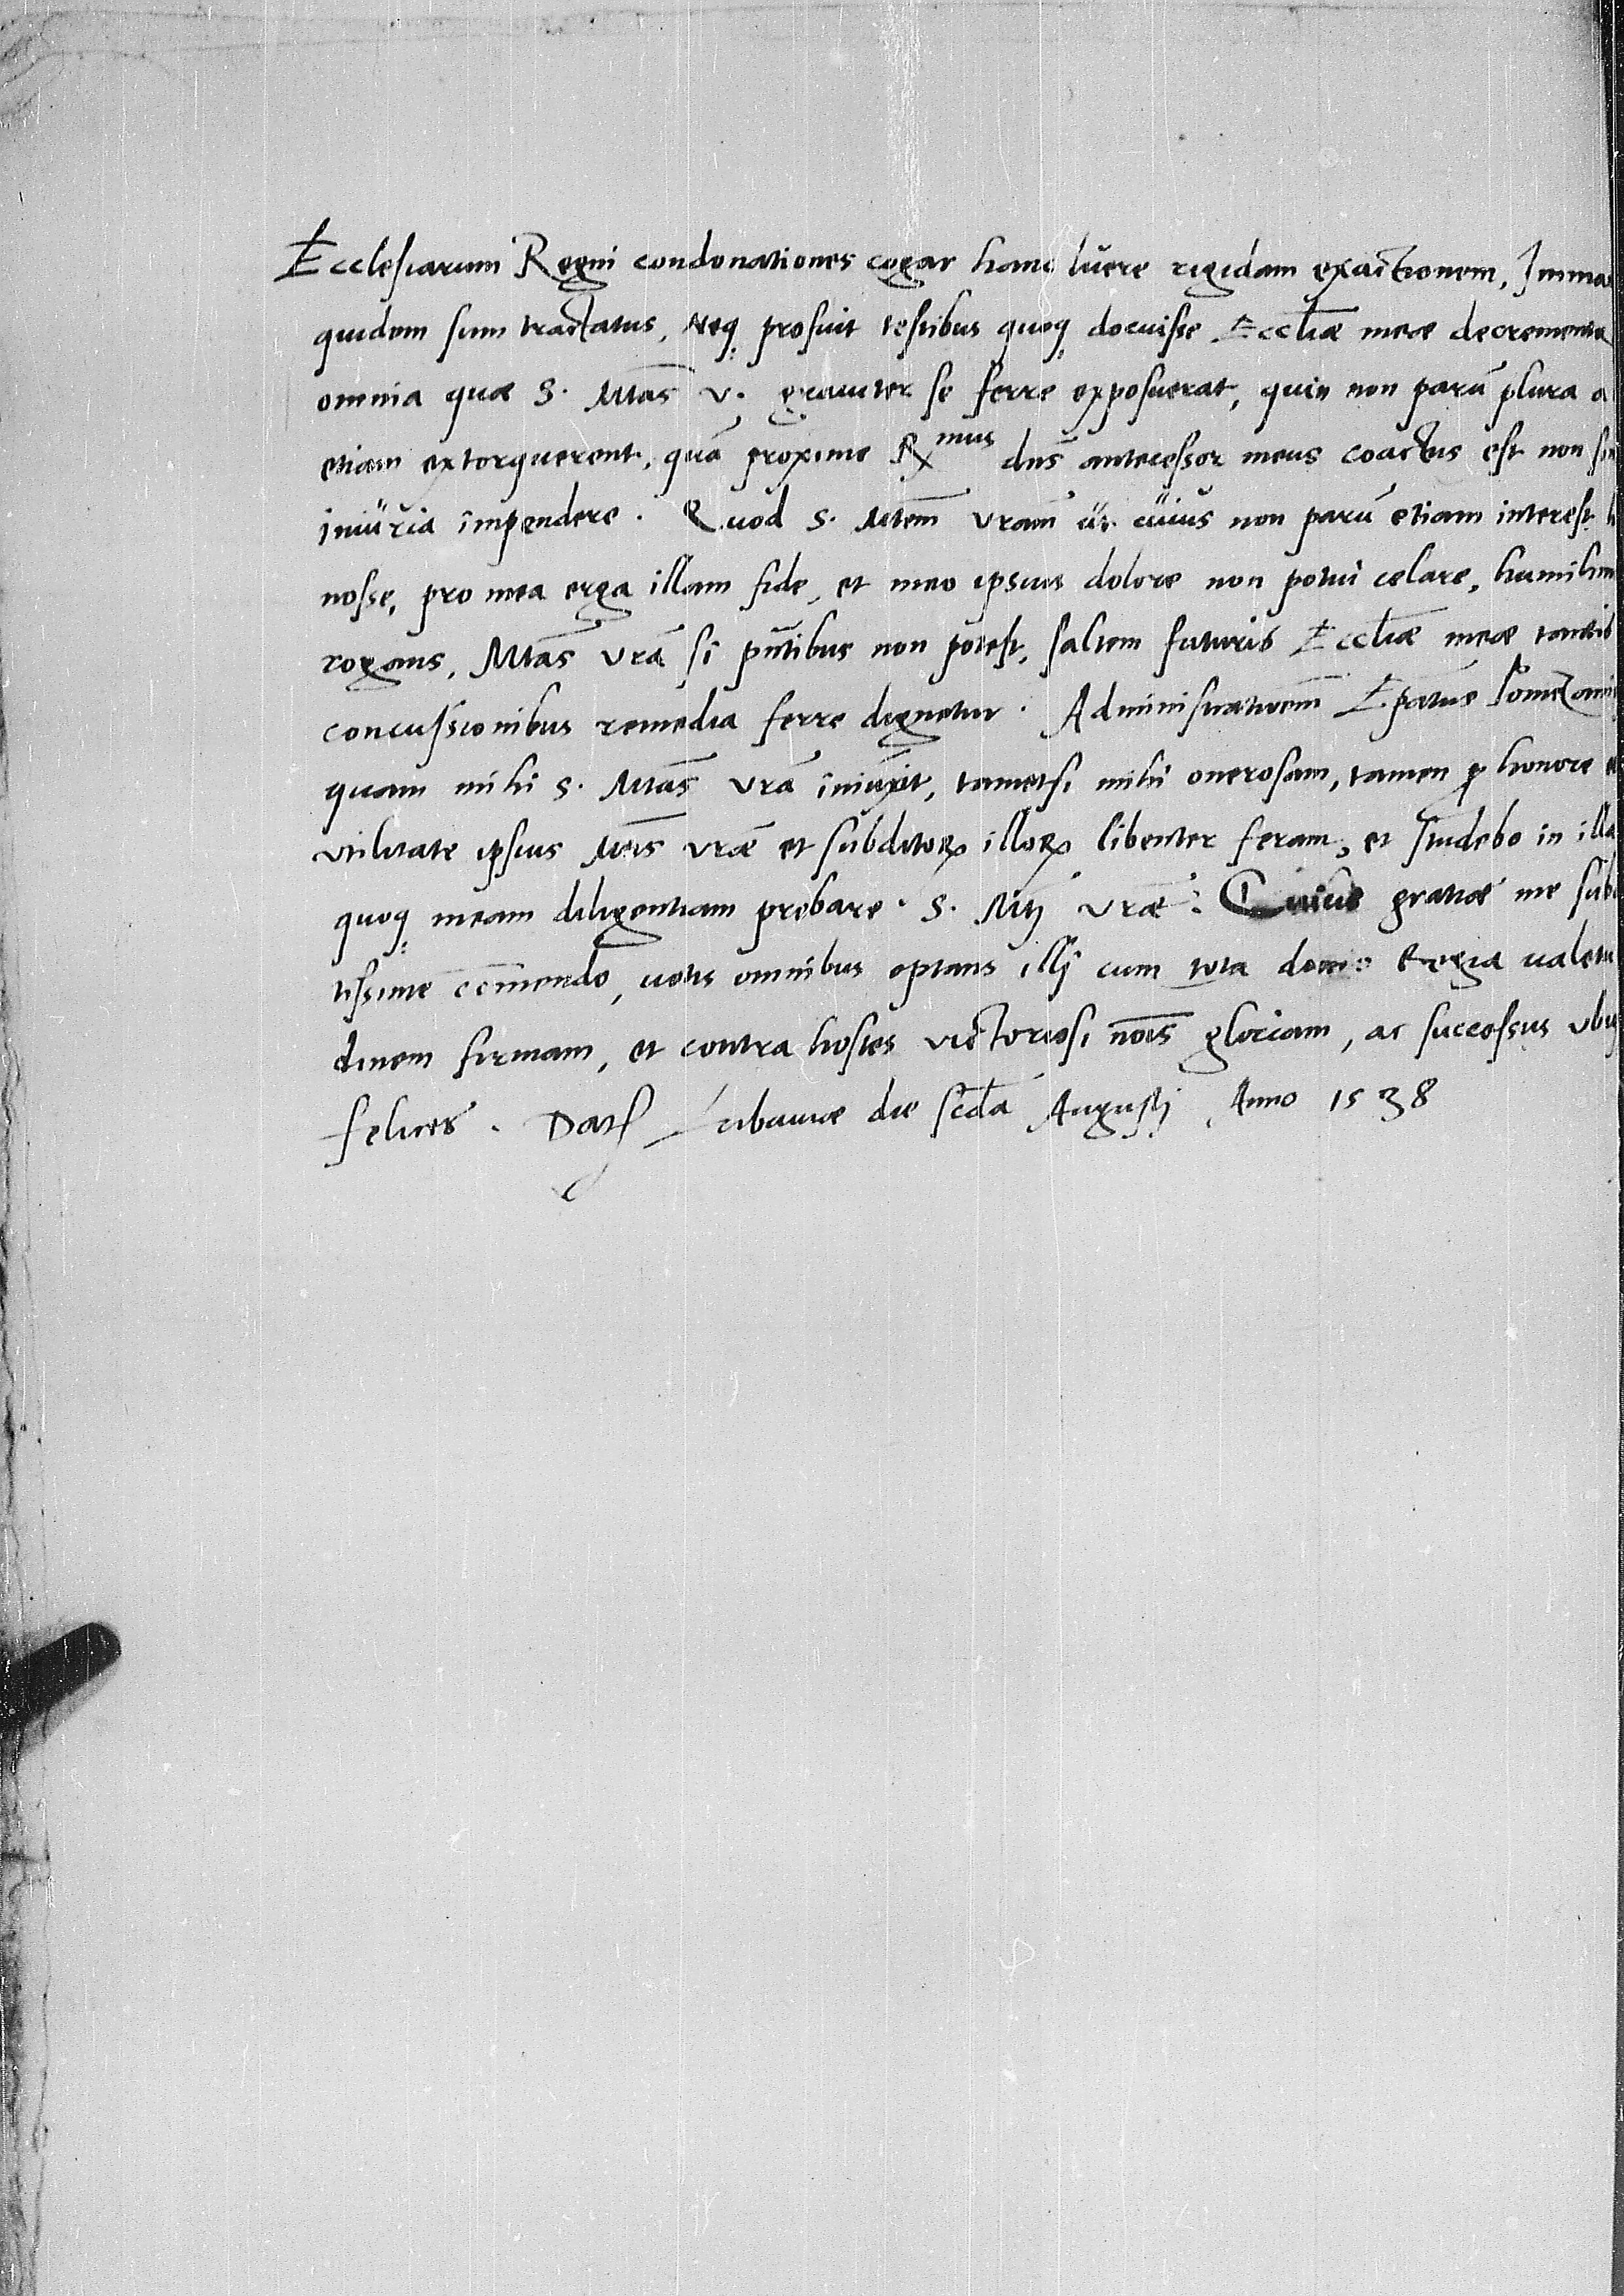 Ecclesiarum Regni condonationes cogar hanc luere rigidam exactionem, Imma
quidem sum tractatus, Neq prosuit testibus quoq docuisse Eccliæ meæ decrementa
omnia quæ S. Mtas V. grauiter se ferre exposuerat, quin non parū plura a
etiam extorquerent, quā proxime Rmus dns antecessor meus coactus est non sin
iniuria impendere. Quod S. Mtem Vram ut cuius non parū etiam interest
nosse, pro mea erga illam fide, et meo ipsius dolore non potui celare, humilim
rogans, Mtas Vra si pntibus non potest, saltem futuris Eccliæ meæ tantis
concussionibus remedia ferre dignetur. Administrationem Epatus Pomezani
quam mihi S. Mtas Vra iniūxit, tametsi mihi onerosam, tamen p honore et
vtilitate ipsius Mtis Vræ et subditoꝝ illoꝝ libenter feram, et studebo in illa
quoq meam diligentiam probare S. Mti Vræ. Cuius gratiæ me subie
tissime cōmendo, uotis omnibus optans illj cum tota domo Regia ualetu
dinem firmam, et contra hostes victoriosi nois gloriam, ac successus vbiq
felices. Dat Lubauiæ die scda Augustj Anno 1538